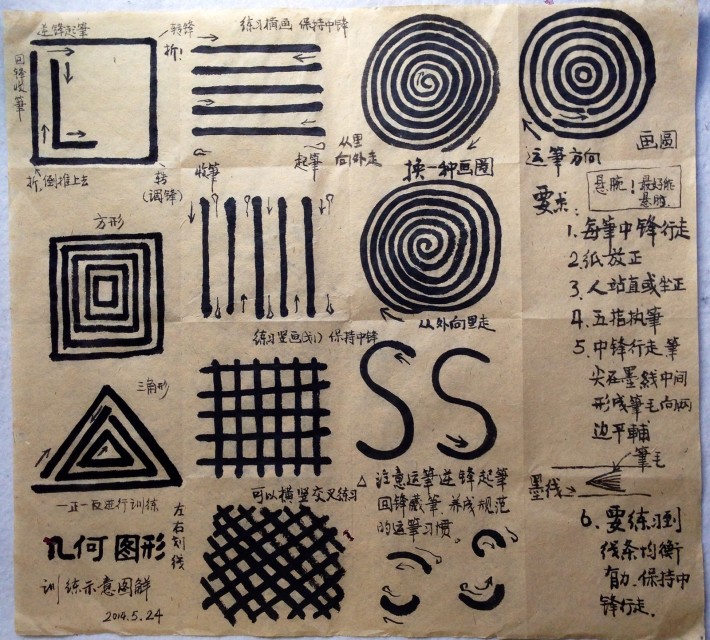 逆锋起筆
转锋
折!
回锋收筆
折,倒推上去
转
(调锋)
练习横画 保持中锋
收筆
起筆
从里
向外走
换一种画圆
运筆方向
画圆
悬腕!最好能
悬腕。
要求:
1.每筆中锋行走
2.纸放正
3.人站直或坐正
4.五指执筆
5.中锋行走筆
尖在墨线中间
形成筆毛向两
边平輔
筆毛
墨线
6.要练习到
线条均衡
有力.保持中
锋行走.
方形
练习竖画(划) 保持中锋
从外向里走
三角形
一正一反进行训练
可以横竖交叉练习
△注意运筆逆锋起筆
回锋藏筆.养成规范
的运筆习惯。
左右划线
几何图形
训练示意图解
2014.5.24